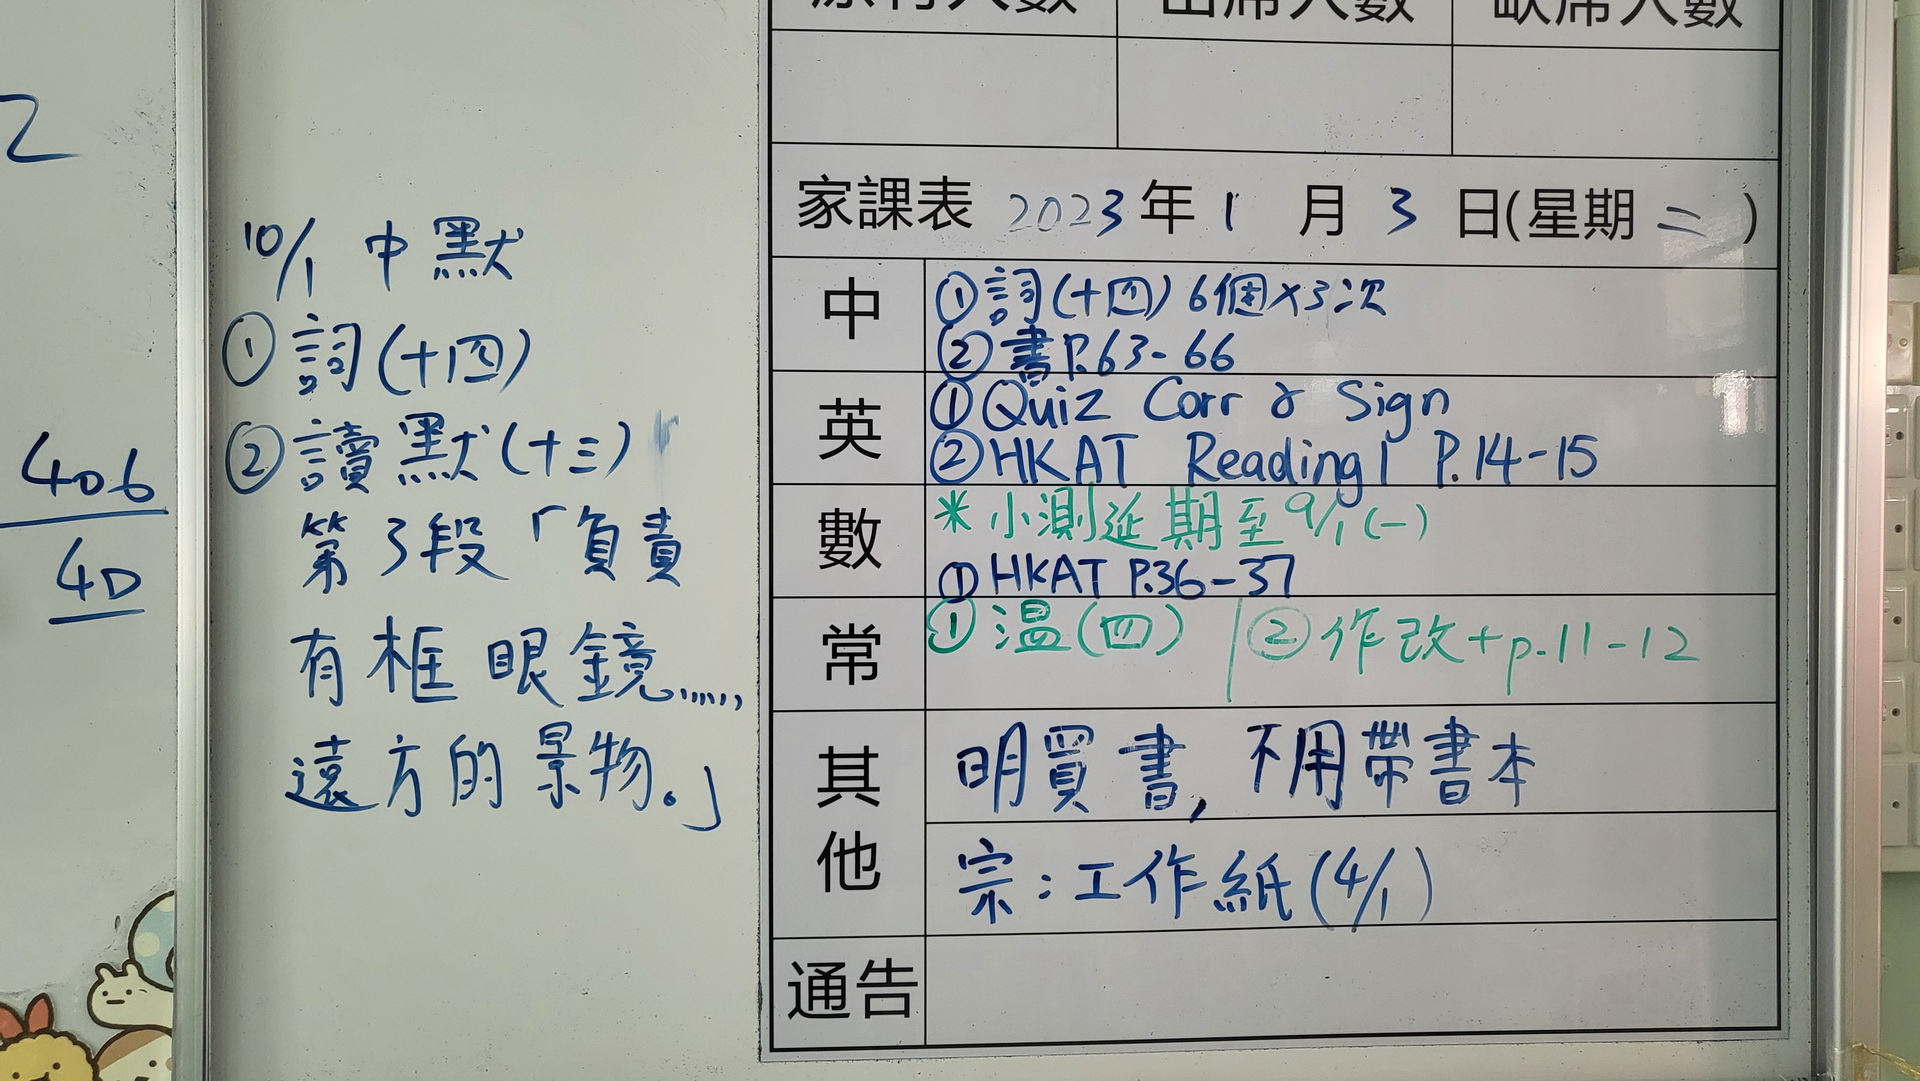 2
406
4D
10/1 中默
① 詞(十四)
② 讀默(十三)
第3段「負責
有框眼鏡......
遠方的景物。」
原有人數 出席人數 缺席人數
家課表 2023年1月3日(星期二)
中 ①詞(十四)6個×3次
②書P.63-66
英 ①Quiz Corr & Sign
②HKAT Reading1 P.14-15
數 *小測延期至9/1(一)
①HKAT P.36-37
常 ①溫(四) | ②作改+p.11-12
其他 明買書,不用帶書本
宗:工作紙(4/1)
通告